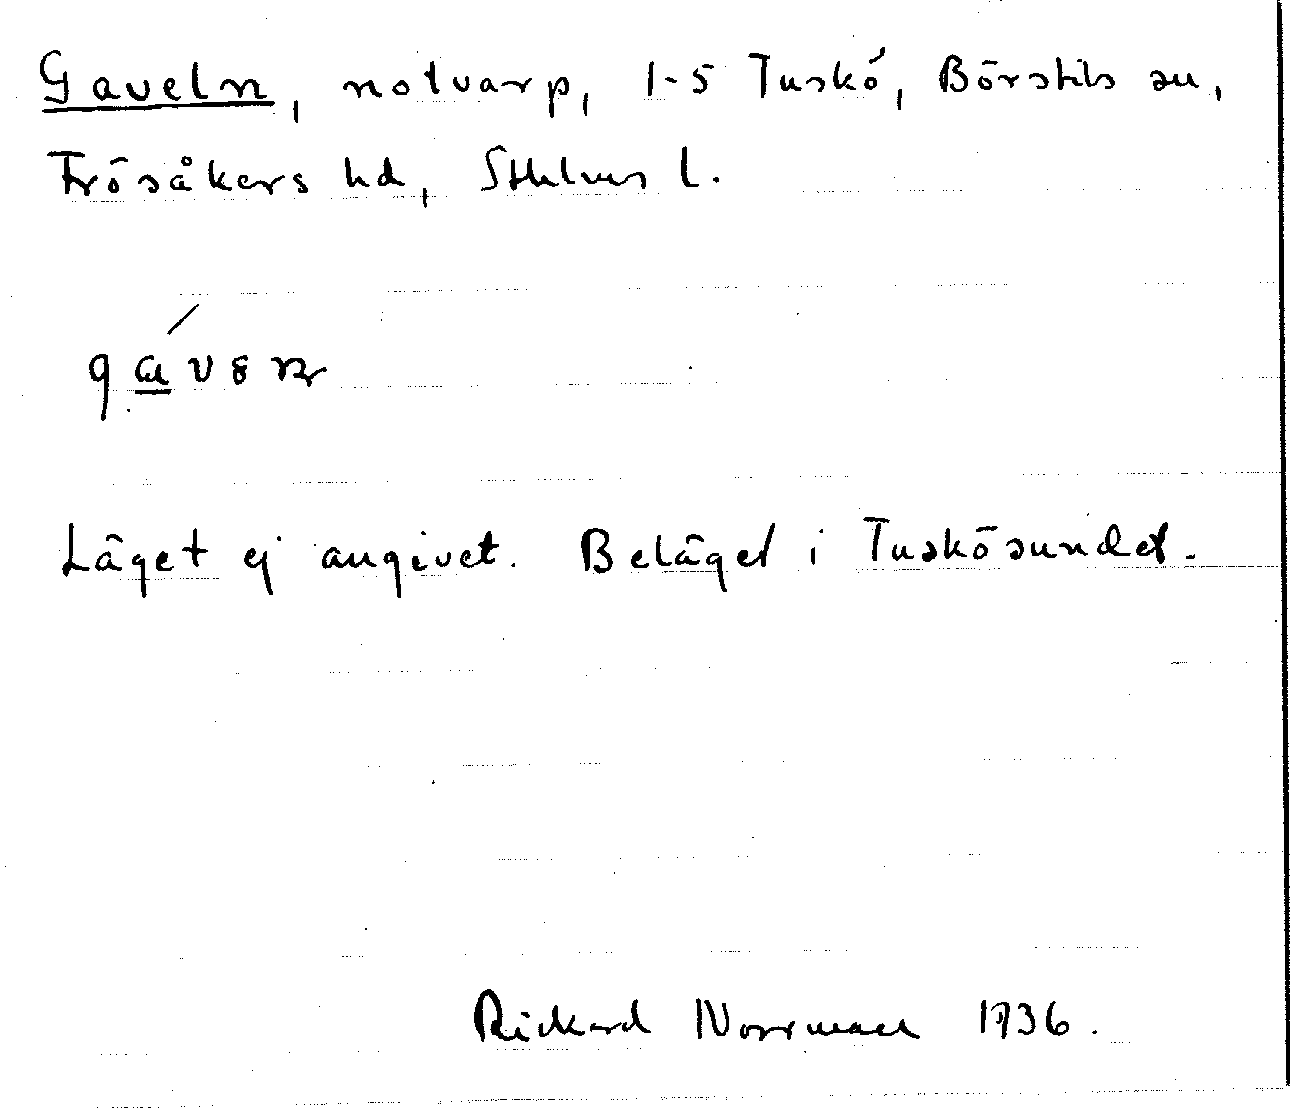 Gaveln, notvarp, 1-5 Tuskö, Börstils sn,
Frösåkers hd, Sthlms l.
Läget ej angivet. Beläget i Tuskösundet.
Rickard Norrman 1936.